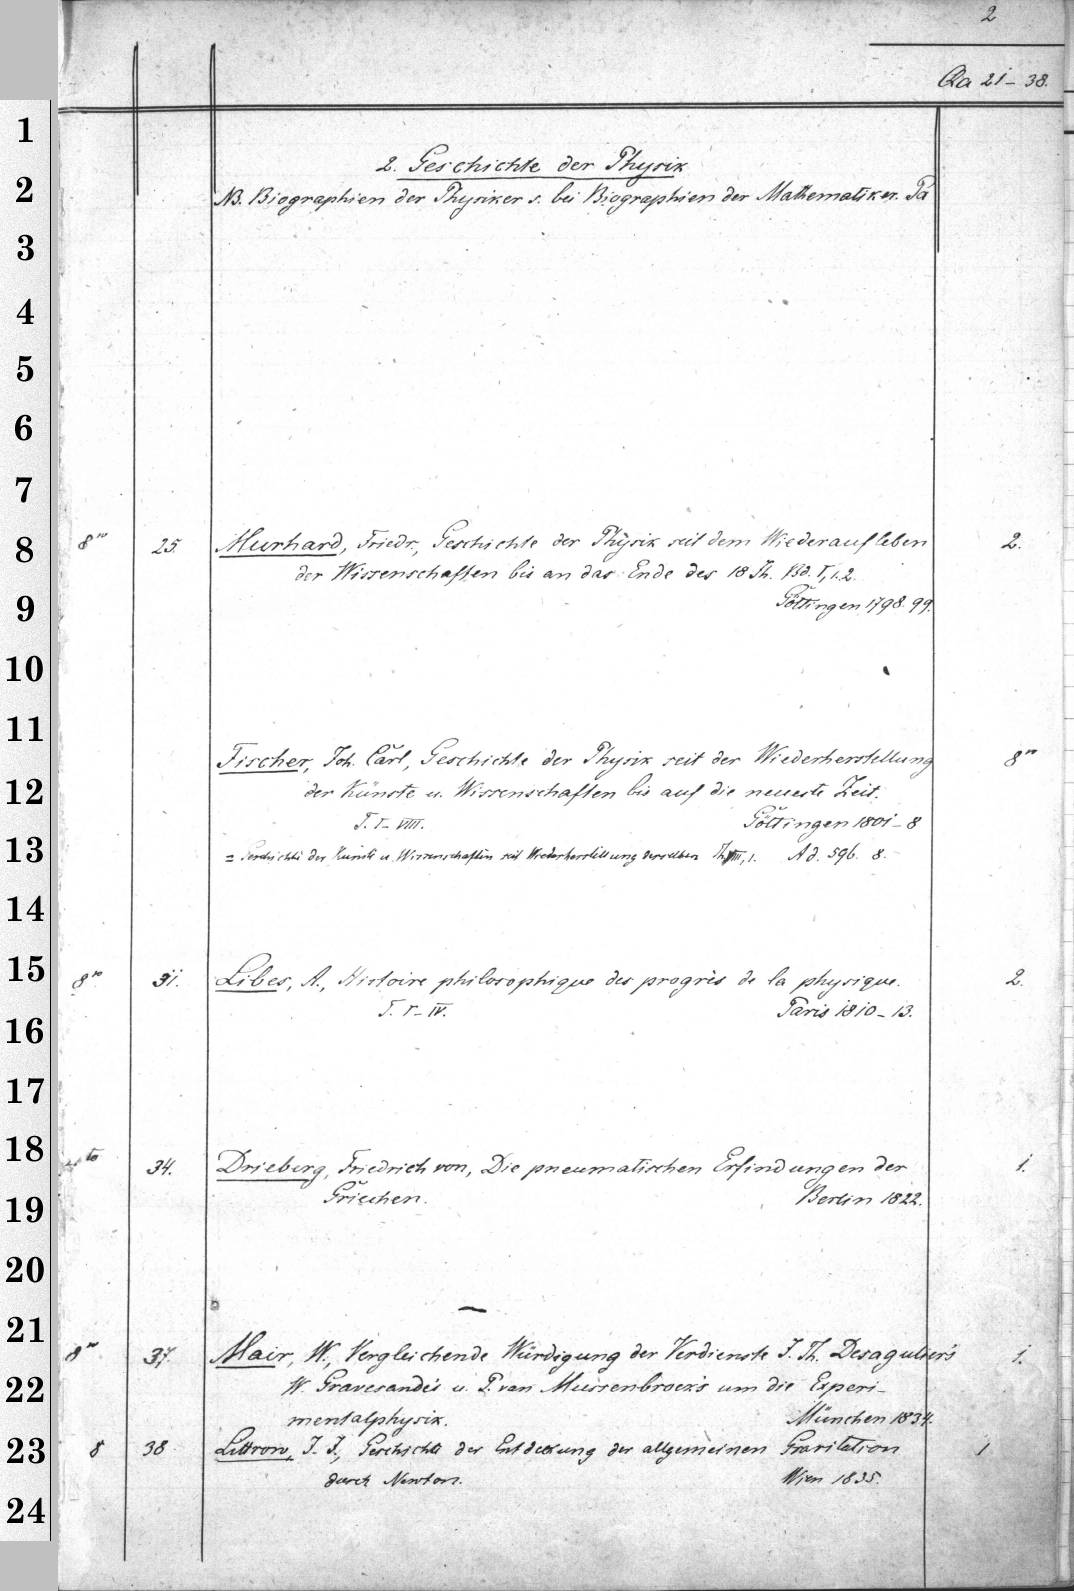 2
Qa 21-38.
2. Geschichte der Physik
NB. Biographien der Physiker s. bei Biographien der Mathematiker. Pa
8vo 25. Murhard, Friedr., Geschichte der Physik seit dem Wiederaufleben 2.
der Wissenschaften bis an das Ende des 18 Jh. Bd. I,1.2.
Göttingen 1798. 99.
Fischer, Joh. Carl, Geschichte der Physik seit der Wiederherstellung 8vo
der Künste u. Wissenschaften bis auf die neueste Zeit.
T. I-VIII. Göttingen 1801-8
= Geschichte der Künste u. Wissenschaften seit Wiederherstellung derselben Th. VIII, 1. Ad. 596. 8.
8vo 31. Libes, A., Histoire philosophique des progrès de la physique. 2.
T. I-IV. Paris 1810-13.
4to 34. Drieberg, Friedrich von, Die pneumatischen Erfindungen der 1.
Griechen. Berlin 1822.
8vo 37. Mair, W., Vergleichende Würdigung der Verdienste J. Th. Desagulier's 1.
W. Gravesande's u. P. van Mussenbroek's um die Experi-
mentalphysik. München 1834.
8 38 Littrow, J. J., Geschichte der Entdeckung der allgemeinen Gravitation 1
durch Newton. Wien 1835.
1
2
3
4
5
6
7
8
9
10
11
12
13
14
15
16
17
18
19
20
21
22
23
24